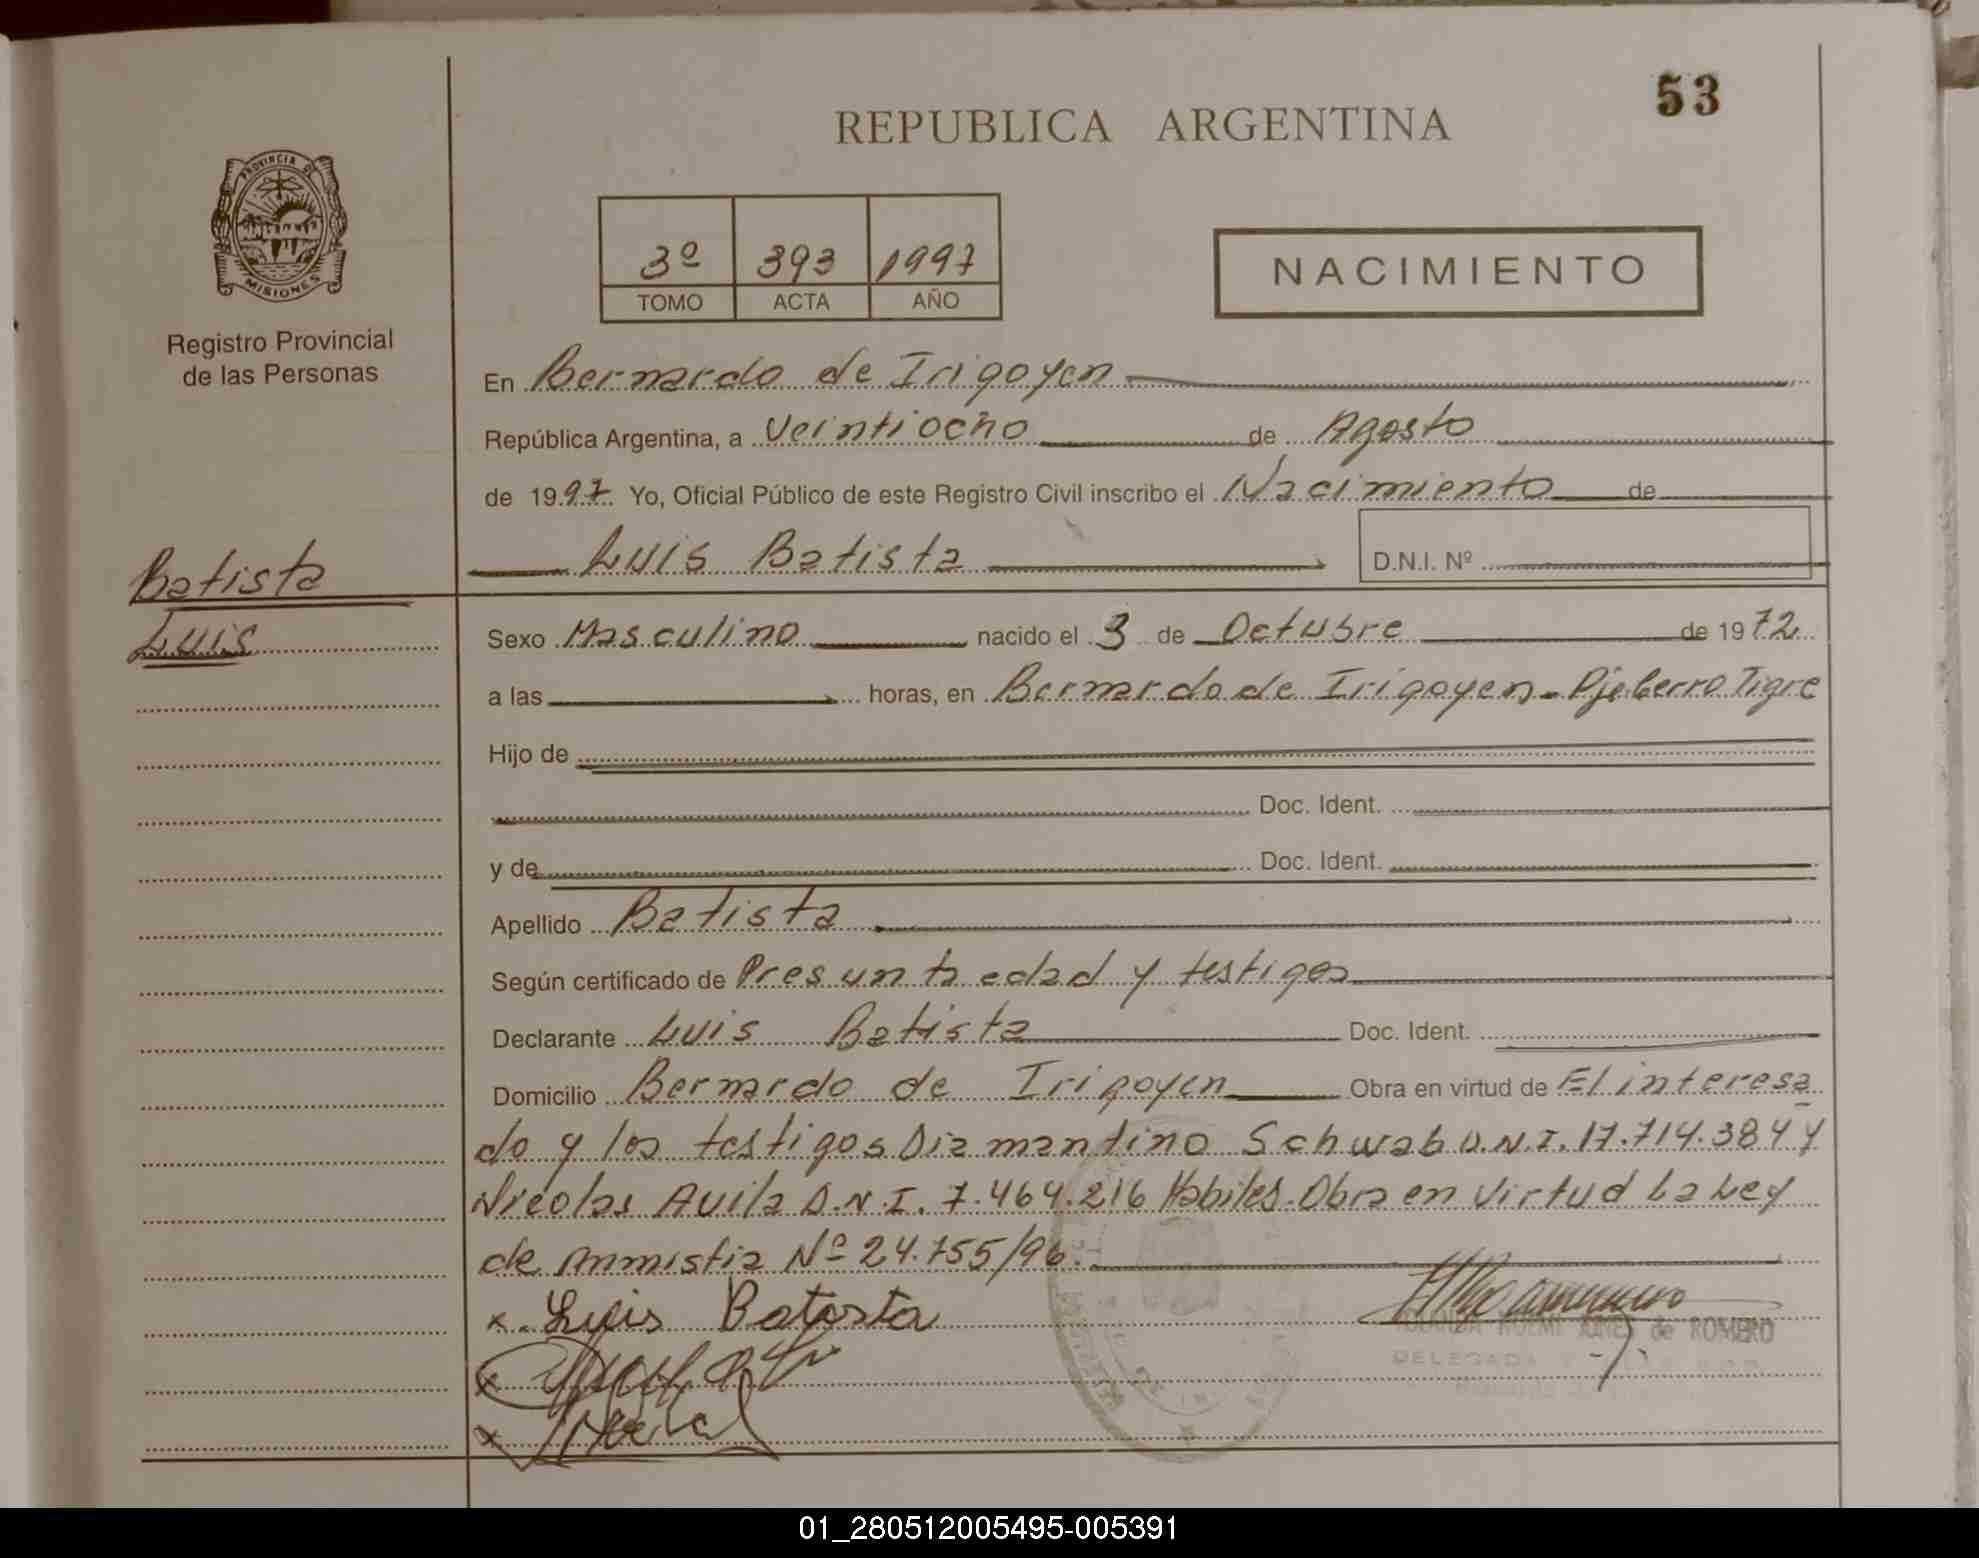 53
REPUBLICA ARGENTINA
PROVINCIA DE
MISIONES
3º 393 1997
TOMO ACTA AÑO
NACIMIENTO
Registro Provincial
de las Personas
En Bernardo de Irigoyen
República Argentina, a Veintiocho de Agosto
de 1997 Yo, Oficial Público de este Registro Civil inscribo el Nacimiento de
Luis Batista D.N.I. Nº
Batista
Luis
Sexo Masculino nacido el 3 de Octubre de 1972
a las horas, en Bernardo de Irigoyen - Pje Cerro Tigre
Hijo de
Doc. Ident.
y de Doc. Ident.
Apellido Batista
Según certificado de Presunta edad y testigos
Declarante Luis Batista Doc. Ident.
Domicilio Bernardo de Irigoyen Obra en virtud de El interesa
do y los testigos Diamantino Schwab D.N.I. 17.714.384 y
Nicolas Avila D.N.I. 7.464.216 Habiles. Obra en Virtud La Ley
de Anmistia Nº 24.755/96.
x. Luis Batista
x
x
de ROMERO
DELEGADA
01_280512005495-005391